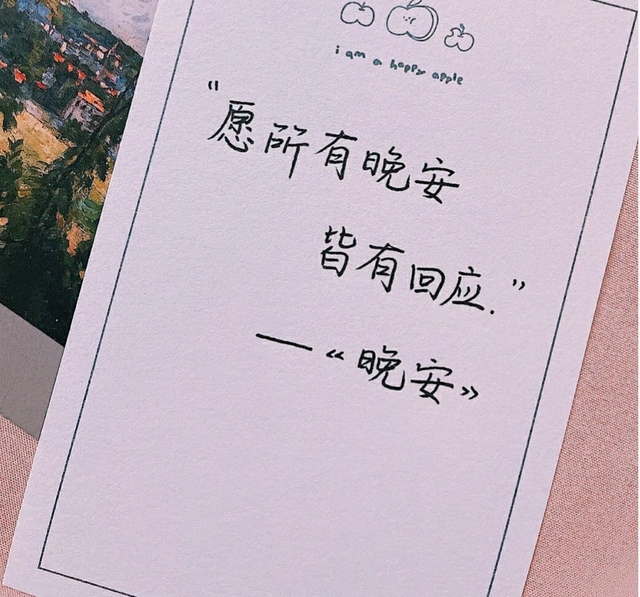 i am a happy apple
"愿所有晚安
皆有回应."
—《晚安》